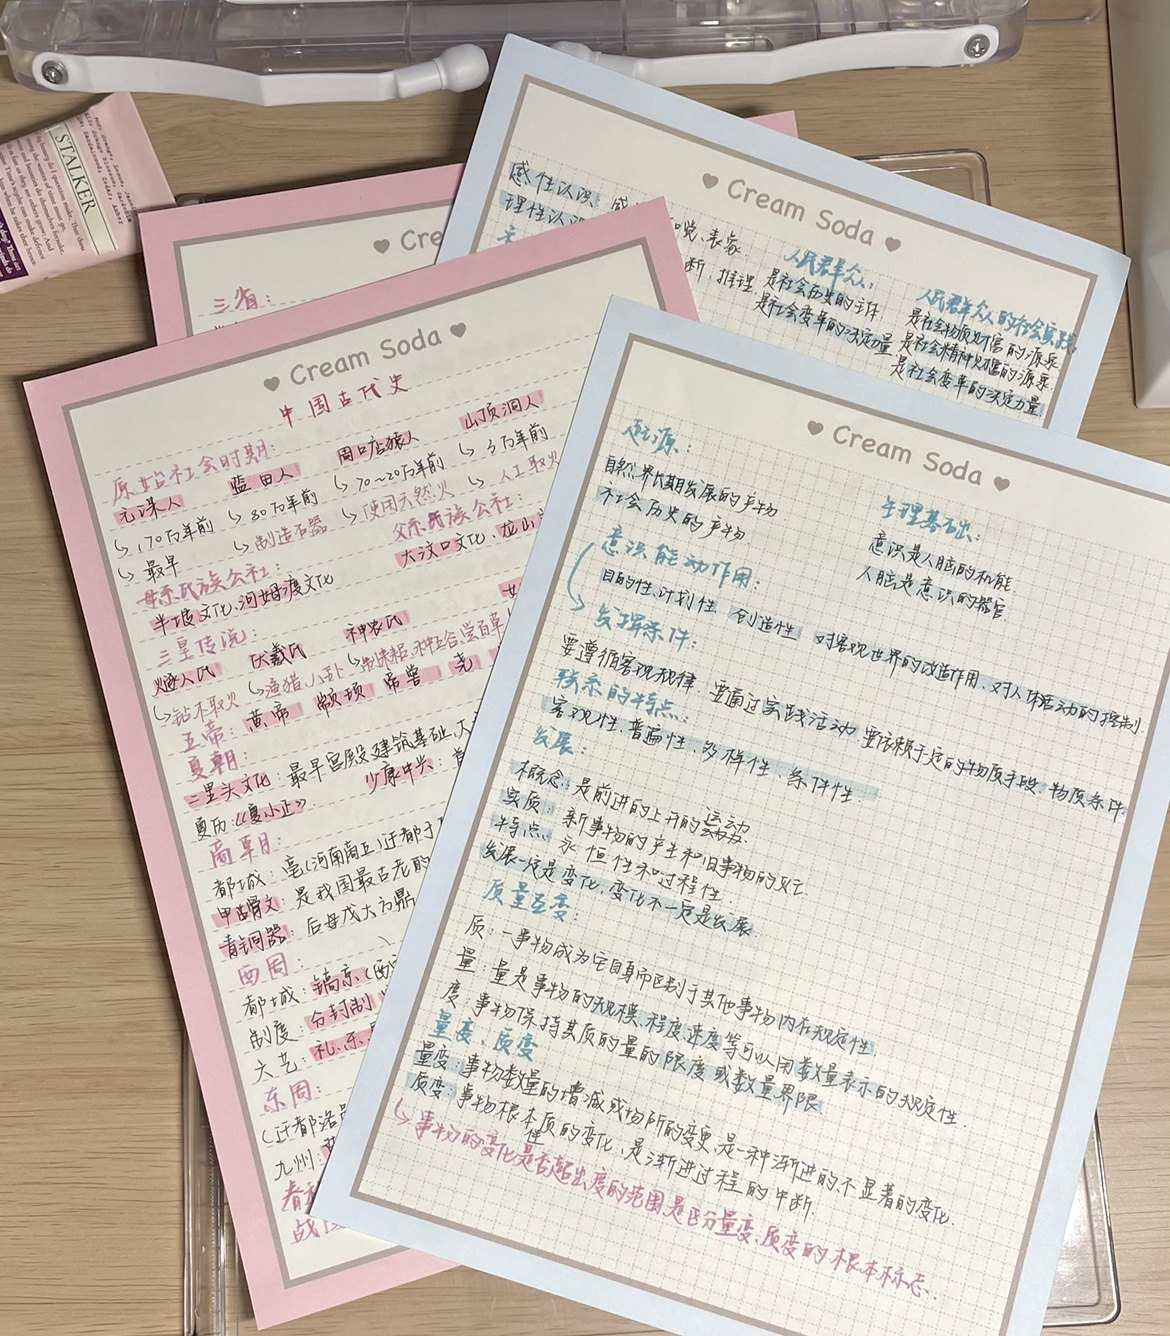 STALKER
Cream Soda
感性认识:
理性认识
觉、表象
断 推理
人民群众:
是社会历史的主体
是社会变革的决定力量
人民群众的社会实践
是社会物质财富的源泉
是社会精神财富的源泉
是社会变革的决定力量
三省:
Cream Soda
中国古代史
原始社会时期:
元谋人 蓝田人 周口店猿人 山顶洞人
170万年前 80万年前 70~20万年前 3万年前
最早 制造石器 使用天然火 人工取火
母系氏族公社: 父系氏族公社:
半坡文化、河姆渡文化 大汶口文化、龙山
三皇传说:
燧人氏 伏羲氏 神农氏
钻木取火 渔猎、八卦 制耒耜、种五谷、尝百草
五帝: 黄帝 颛顼 帝喾 尧
夏朝:
二里头文化 最早宫殿建筑基础,大
夏历:《夏小正》 少康中兴:
商朝:
都城:亳(河南商丘)迁都于
甲骨文:是我国最古老的
青铜器:后母戊大方鼎
西周
都城:镐京(西
制度:分封制
六艺:礼、乐、
东周:
(迁都洛
九州:
春秋
战
Cream Soda
起源:
自然界长期发展的产物
社会历史的产物
生理基础:
意识是人脑的机能
人脑是意识的器官
意识能动作用:
目的性、计划性 创造性 对客观世界的改造作用、对人体活动的控制
发挥条件:
要遵循客观规律 要通过实践活动 要依赖于一定的物质手段、物质条件
联系的特点:
客观性、普遍性、多样性、条件性
发展:
概念:是前进的上升的运动
实质:新事物的产生和旧事物的灭亡
特点:永恒性和过程性.
发展一定是变化,变化不一定是发展
质量互变:
质:一事物成为它自身而区别于其他事物内在规定性
量:量是事物的规模、程度、速度等可以用数量表示的规定性
度:事物保持其质的量的限度或数量界限
量变、质变
量变:事物数量的增减或场所的变更,是一种渐进的、不显著的变化.
质变:事物根本性质的变化,是渐进过程的中断.
事物的变化是否超出度的范围是区分量变、质变的根本标志.